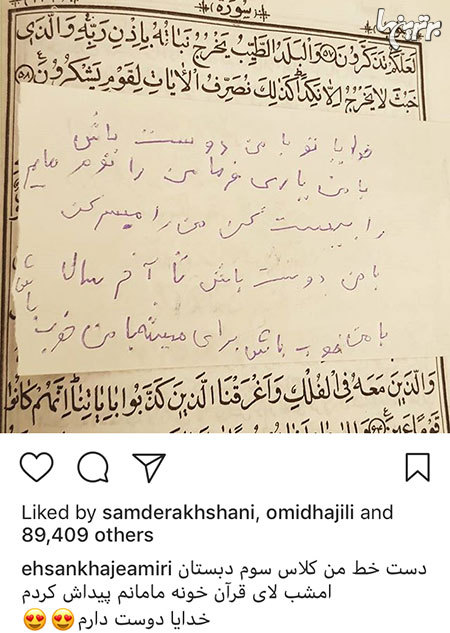 سورة
برترینها
لعلكم تذكرون ٥٧ والبلد الطيب يخرج نباته بإذن ربه والذي
خبث لا يخرج إلا نكدا كذلك نصرف الآيات لقوم يشكرون ٥٨
خدایا تو با من دوست باش
با من یاری فرما من را
را بیست کن من را میسر کن
با من دوست باش تا آخر سال
با من خوب باش برای همیشه با من خوب
باش
والذين معه في الفلك وأغرقنا الذين كذبوا بآياتنا إنهم كانوا
قوما عمين
Liked by samderakhshani, omidhajili and
89,409 others
ehsankhajeamiri دست خط من كلاس سوم دبستان
امشب لای قرآن خونه مامانم پیداش کردم
خدایا دوست دارم 😍😍